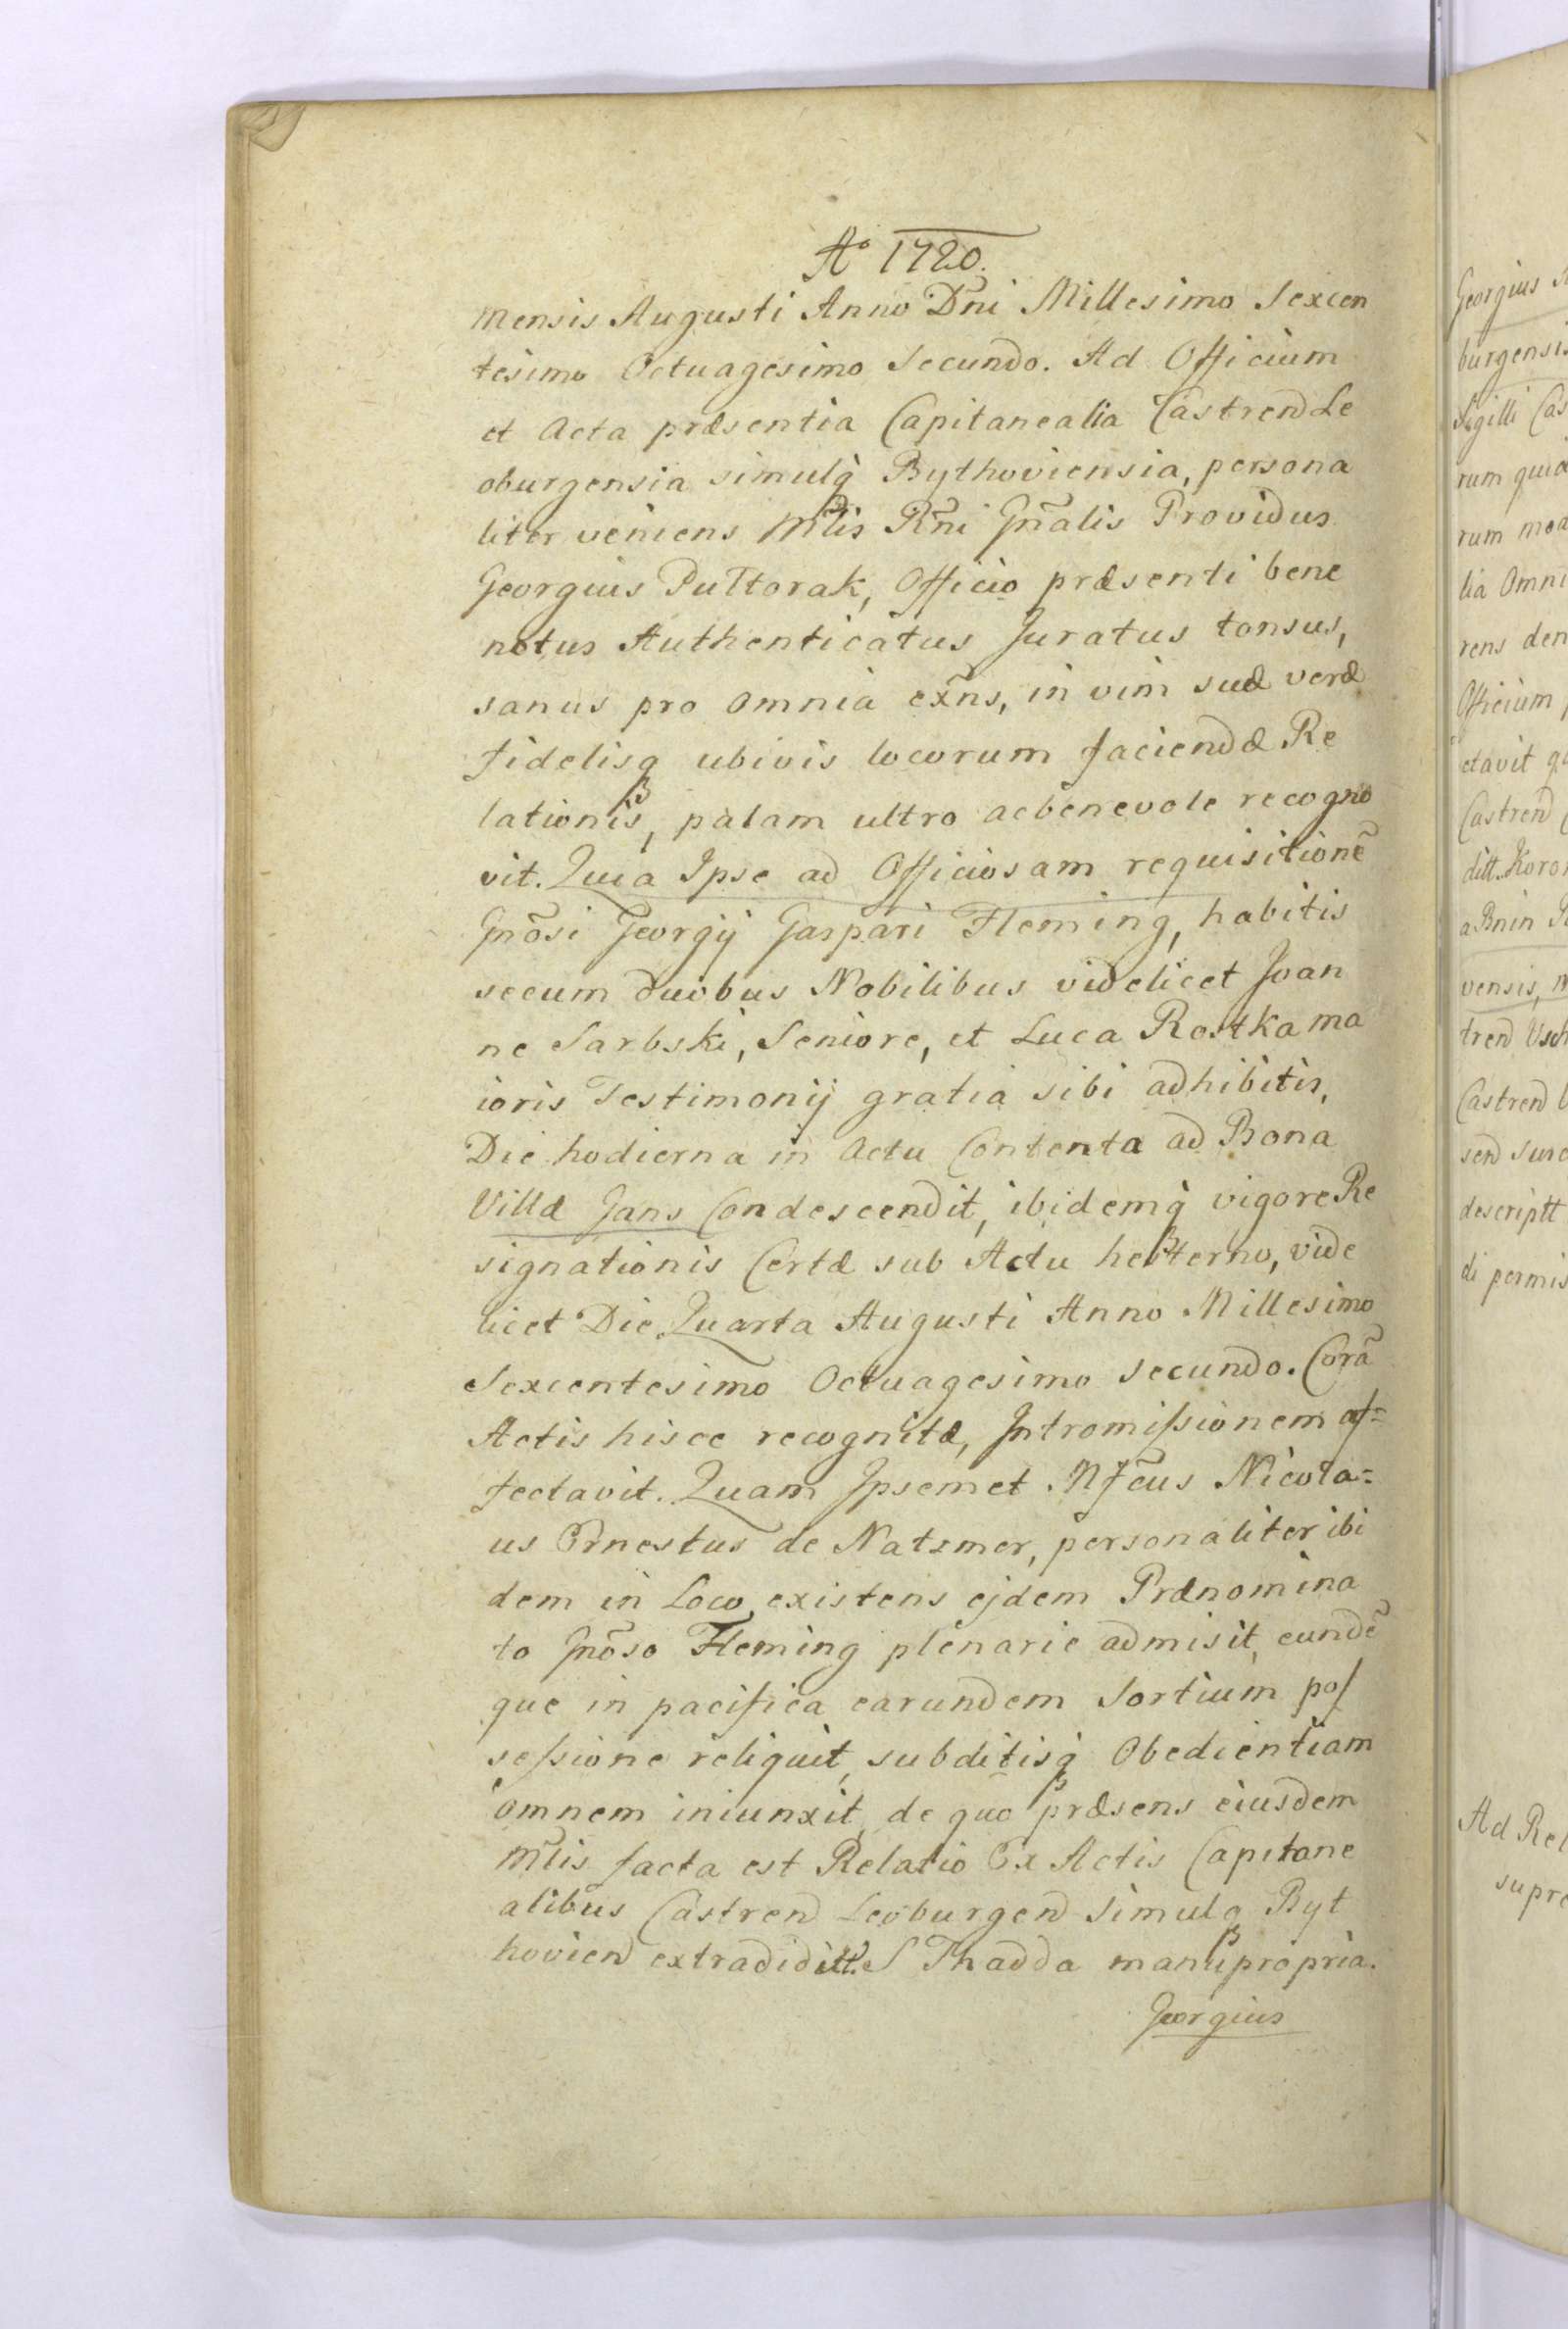 Aº 1720.
mensis Augusti Anno Dñi Millesimo Sexcen
tesimo Octuagesimo Secundo. Ad Officium
et Acta præsentia Capitanealia Castrend Le
oburgensia simulq̀ Bythoviensia, persona
liter veniens Mt̃lis Rñi Gñalis Providus
Georgius Puttorak, Officio præsenti bene
notus Authenticatus Juratus tonsus,
sanus pro omnia exñs, in vim suæ veræ
fidelisq ubivis locorum faciendæ Re
lationis, palam ultro ac benevole recogno
vit. Quia Ipse ad Officiosam requisitionẽ
Gnõsi Georgij Gaspari Fleming, habitis
secum duobus Nobilibus videlicet Joan
ne Sarbski, Seniore, et Luca Rostka ma
ioris Testimonij gratia sibi adhibitis,
Die hodierna in Actu Contenta ad Bona
Villæ Jans Condescendit, ibidemq̀ vigore Re
signationis Certæ sub Actu hesterno, vide
licet Die Quarta Augusti Anno Millesimo
Sexcentesimo Octuagesimo secundo. Corã
Actis hisce recognitæ, Intromissionem af=
fectavit. Quam Ipsemet Mf̃cus Nicola=
us Ernestus de Natzmer, personaliter ibi
dem in Loco existens ejdem Prænomina
to Gnõso Fleming plenarie admisit, eundẽ
que in pacifica earundem Sortium pos
sessione reliquit, subditisq̀ Obedientiam
omnem iniunxit, de quo præsens eiusdem
Mt̃lis facta est Relatio Ex Actis Capitane
alibus Castrend Leoburgend simulq Byt
hoviend extradditt. S Thadda manu propria.
Georgius
Georgius
burgensis
Sigilli Cas
rum quid
rum mod
lia Omni
rens den
Officium
ctavit
Castrend
ditt. Koron
a Bnin
vensis,
trend Vsch
Castrend
send
descriptt
di permis
Ad Rel
supre